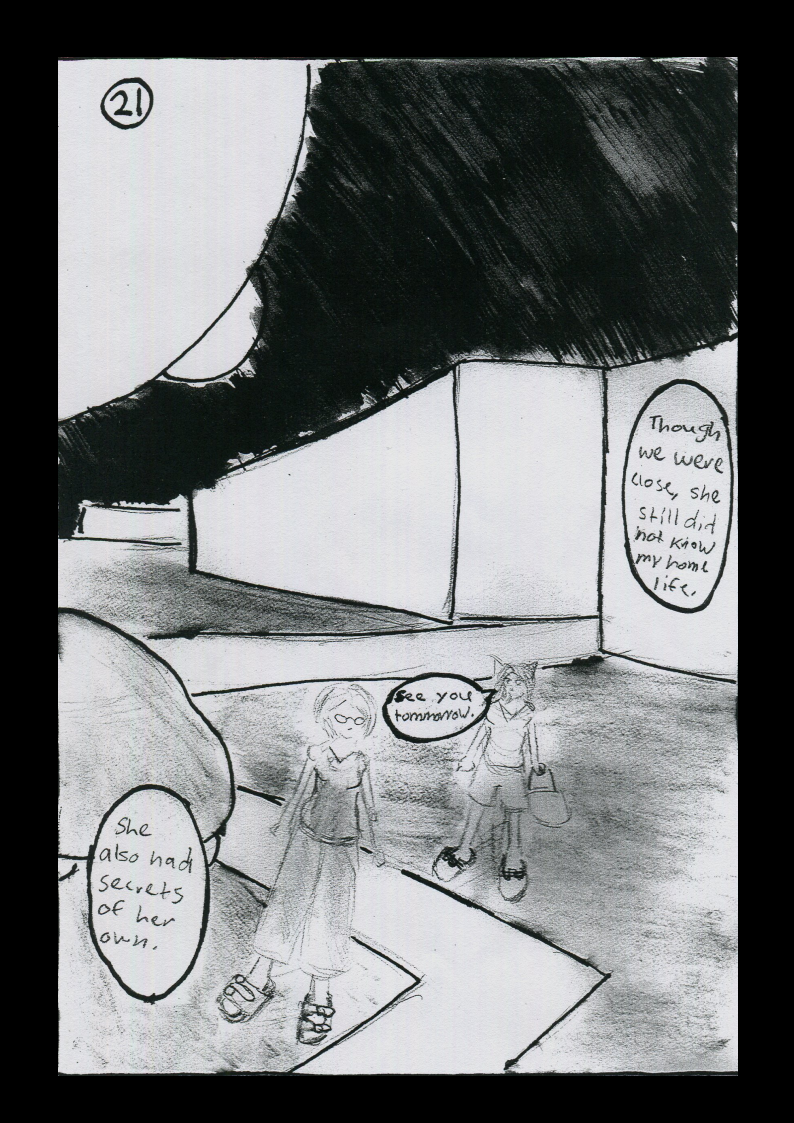 21
Though
we were
close, she
still did
not know
my home
life.
See you
tommorow.
She
also had
secrets
of her
own.